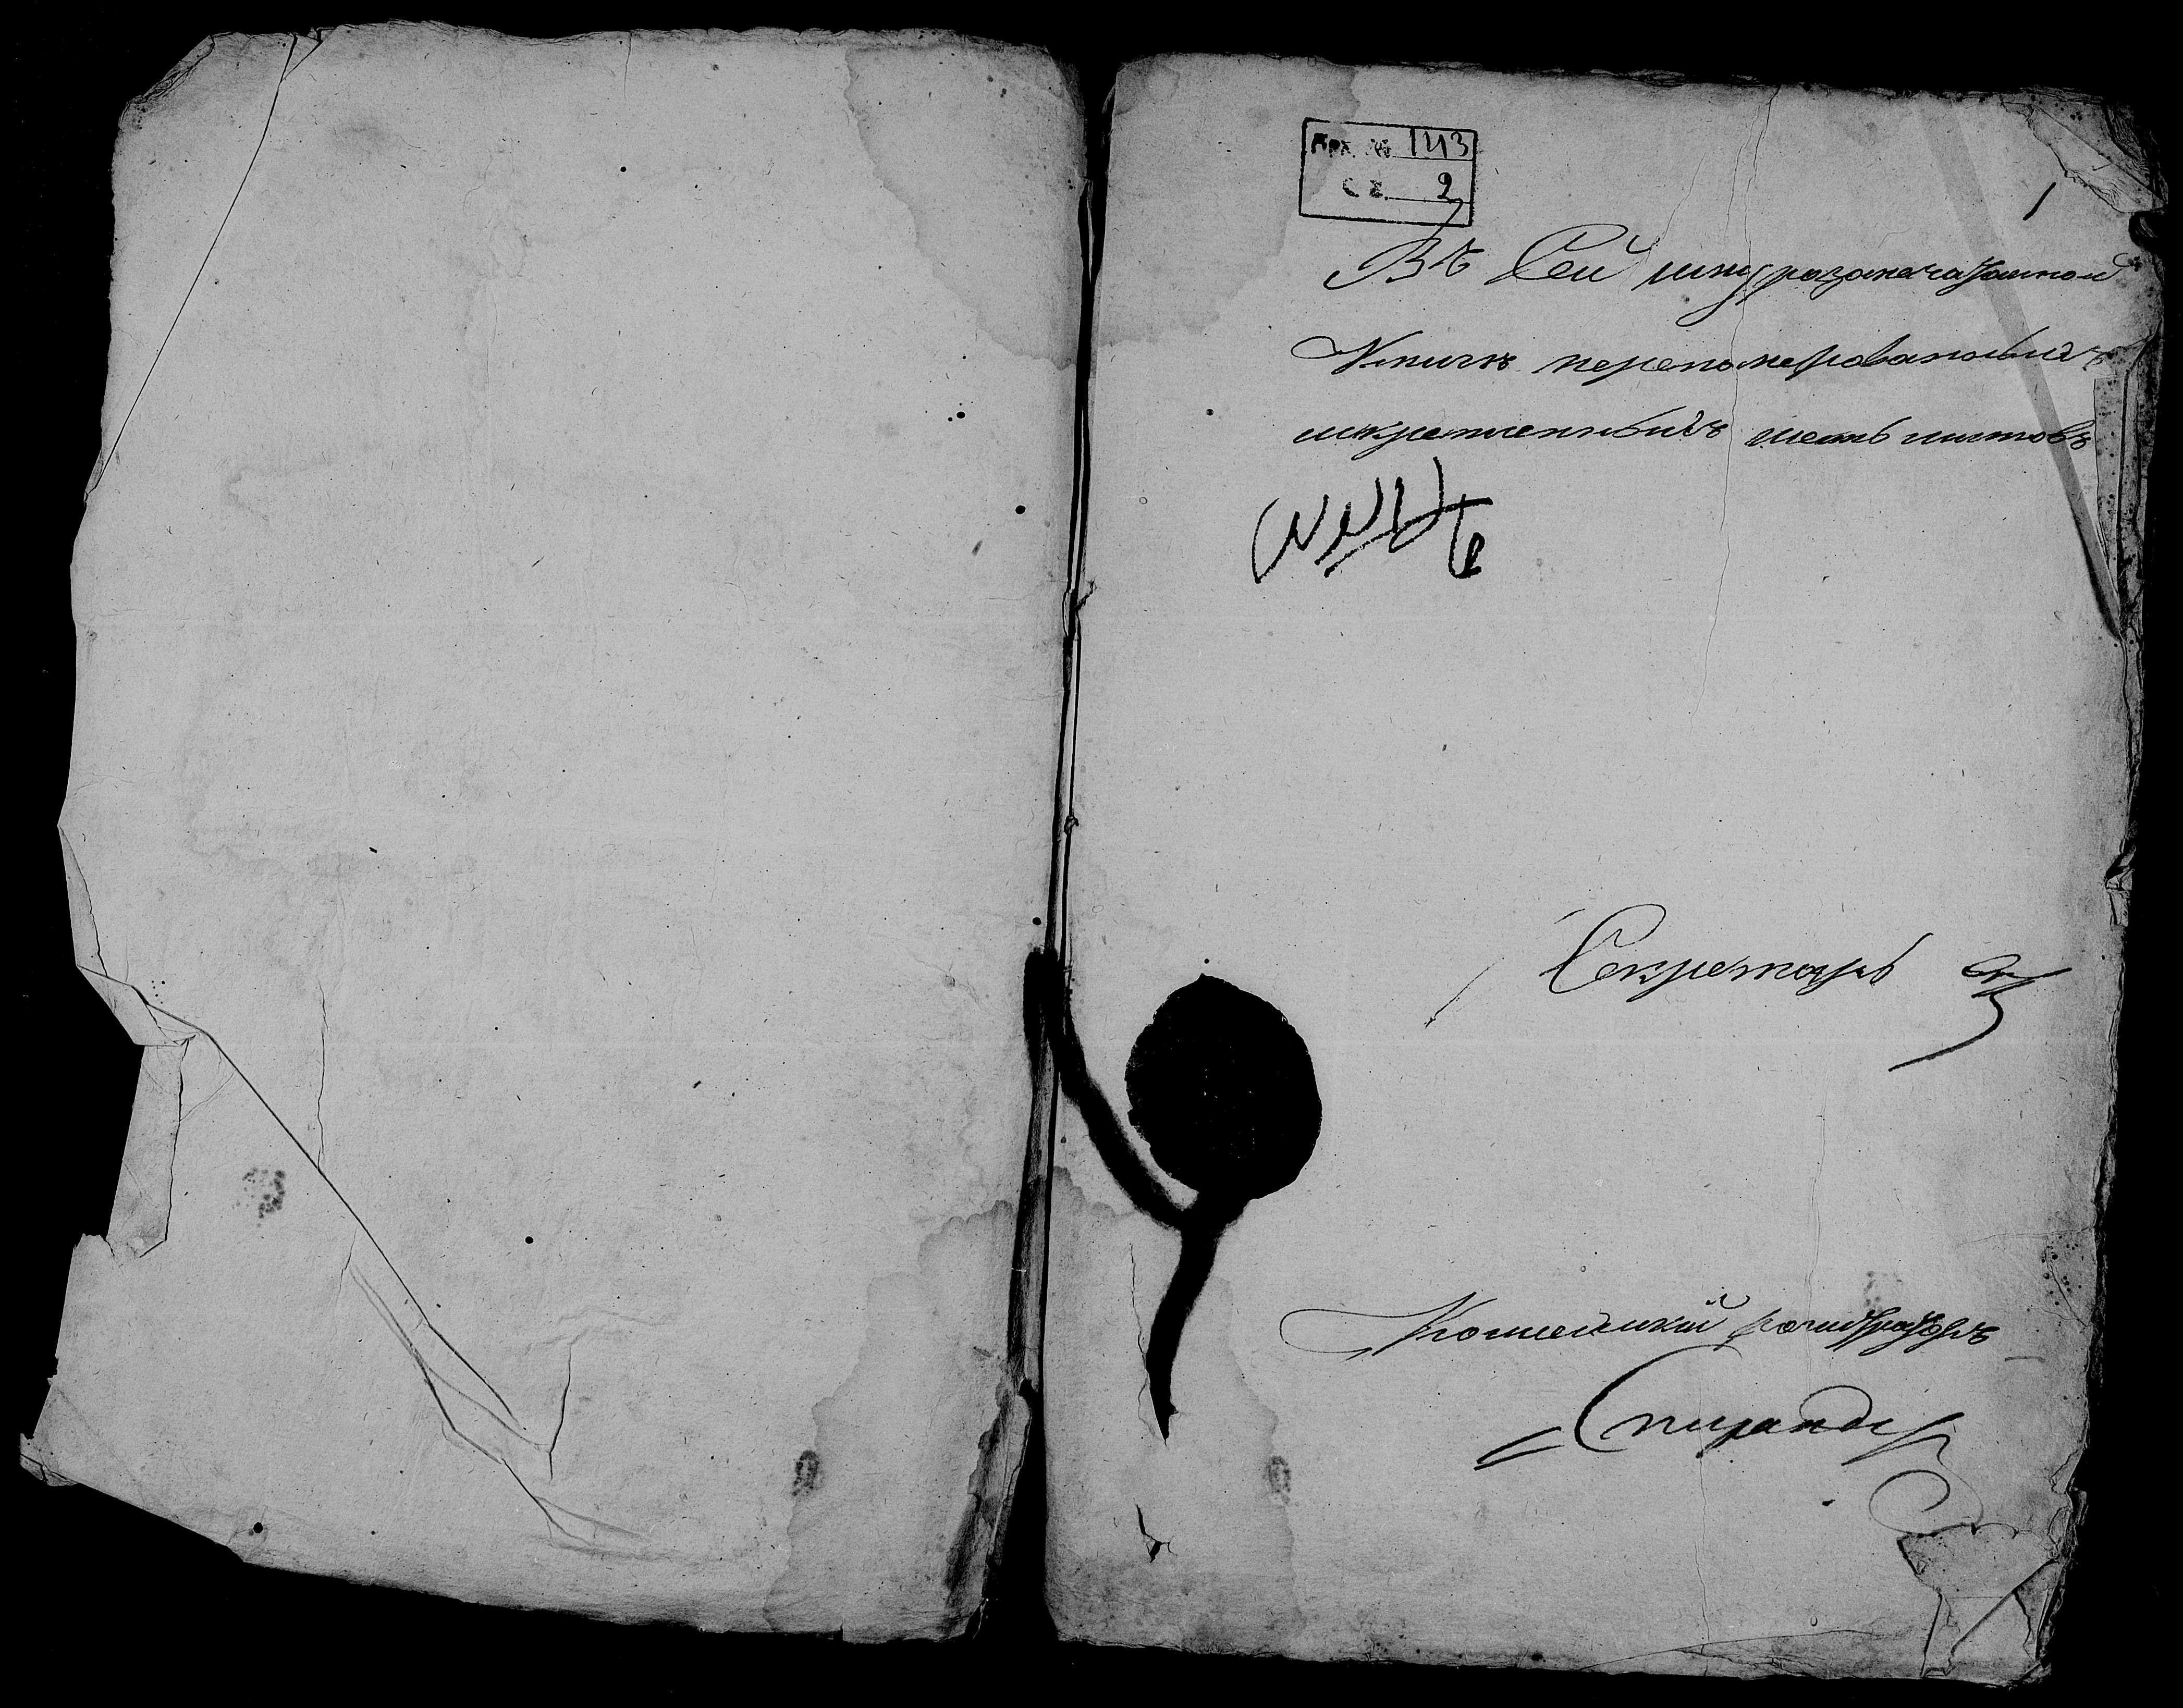 Арх. № 143
св. 2
1
Въ Сей шнурозапечатанной
Книги перенумерованныхъ
искрепленныхъ шесть листовъ
Секретарь
Коллежский регистраторъ